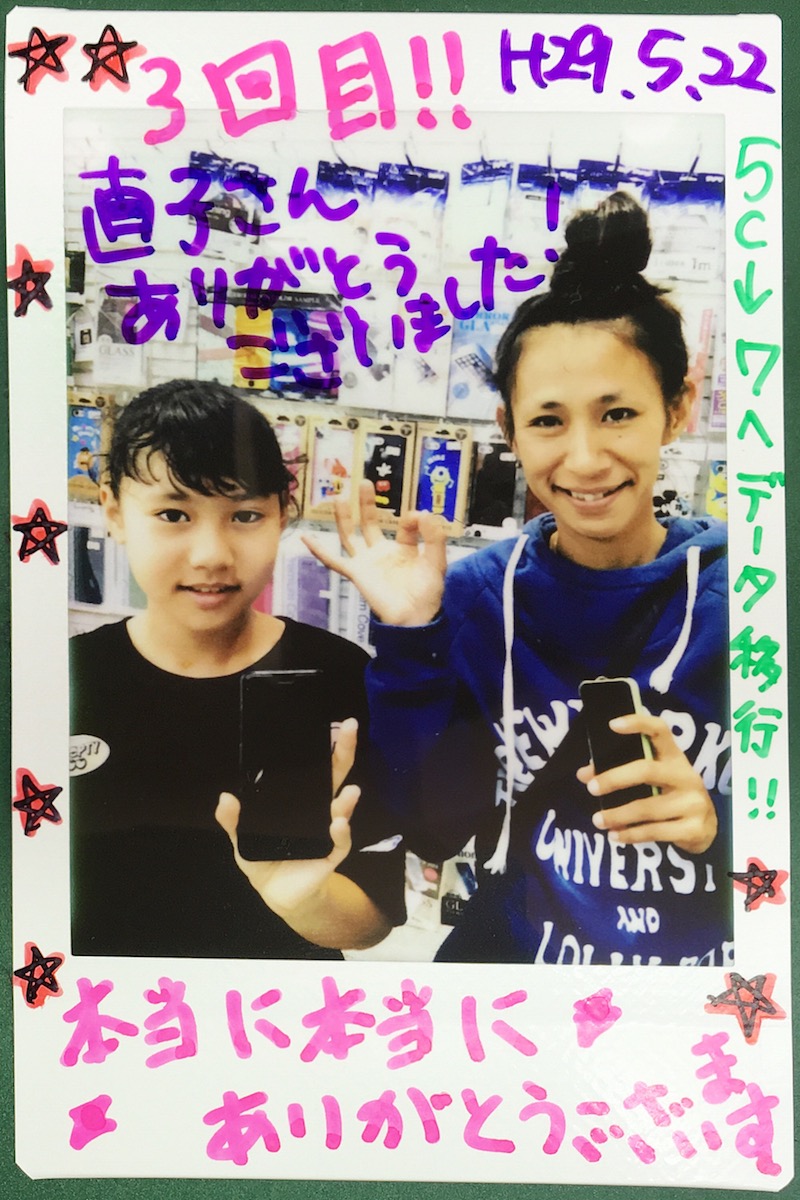 3回目!!
H29.5.22
直子さん
ありがとう
ございました!
5C→7へデータ移行!!
GLASS
1m
THE NEW YORK
UNIVERSI
AND
本当に本当に
ありがとうございます